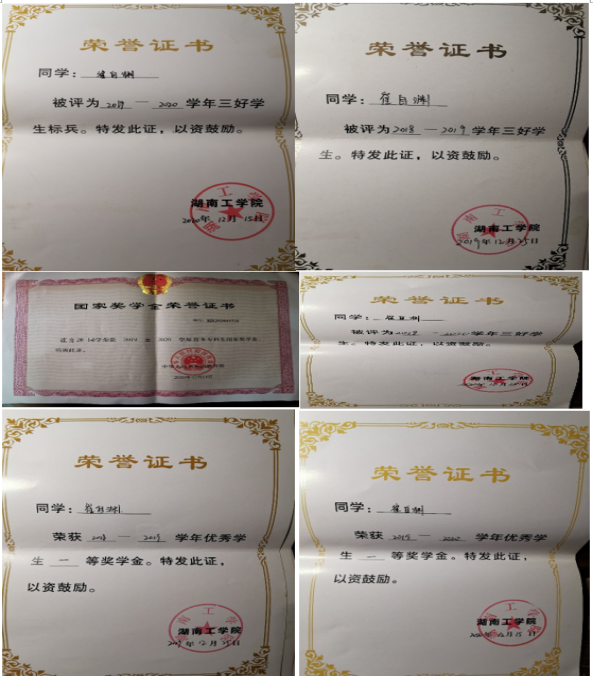 荣誉证书
同学：崔自渊
被评为2019—2020学年三好学
生标兵。特发此证，以资鼓励。
湖南工学院
2020年12月15日
荣誉证书
同学：崔自渊
被评为2018—2019学年三好学
生。特发此证，以资鼓励。
湖南工学院
2019年12月25日
国家奖学金荣誉证书
荣誉证书
同学：崔自渊
被评为2019—2020学年三好学
生。特发此证，以资鼓励。
湖南工学院
荣誉证书
同学：崔自渊
荣获2018—2019学年优秀学
生一等奖学金。特发此证，
以资鼓励。
湖南工学院
2019年12月25日
荣誉证书
同学：崔自渊
荣获2019—2020学年优秀学
生一等奖学金。特发此证，
以资鼓励。
湖南工学院
2020年12月15日